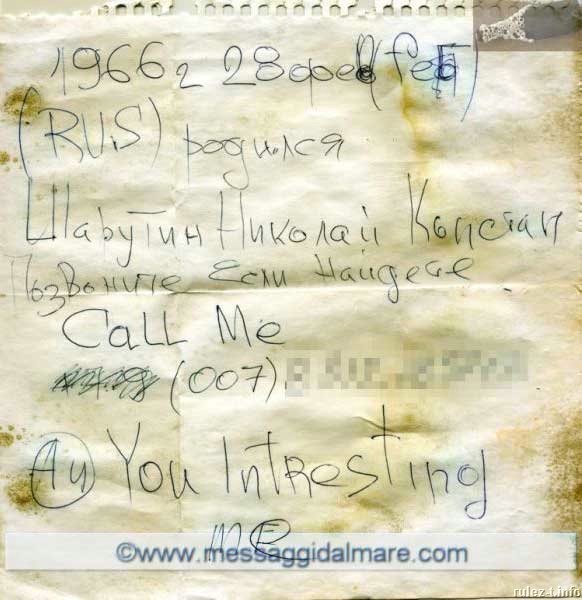 1966 г 28 фев (feb)
(RUS) родился
Шарутин Николай Констан
Позвоните Если Найдете
Call Me
(007)
You Intresting
me
©www.messaggidalmare.com
rulez4.info